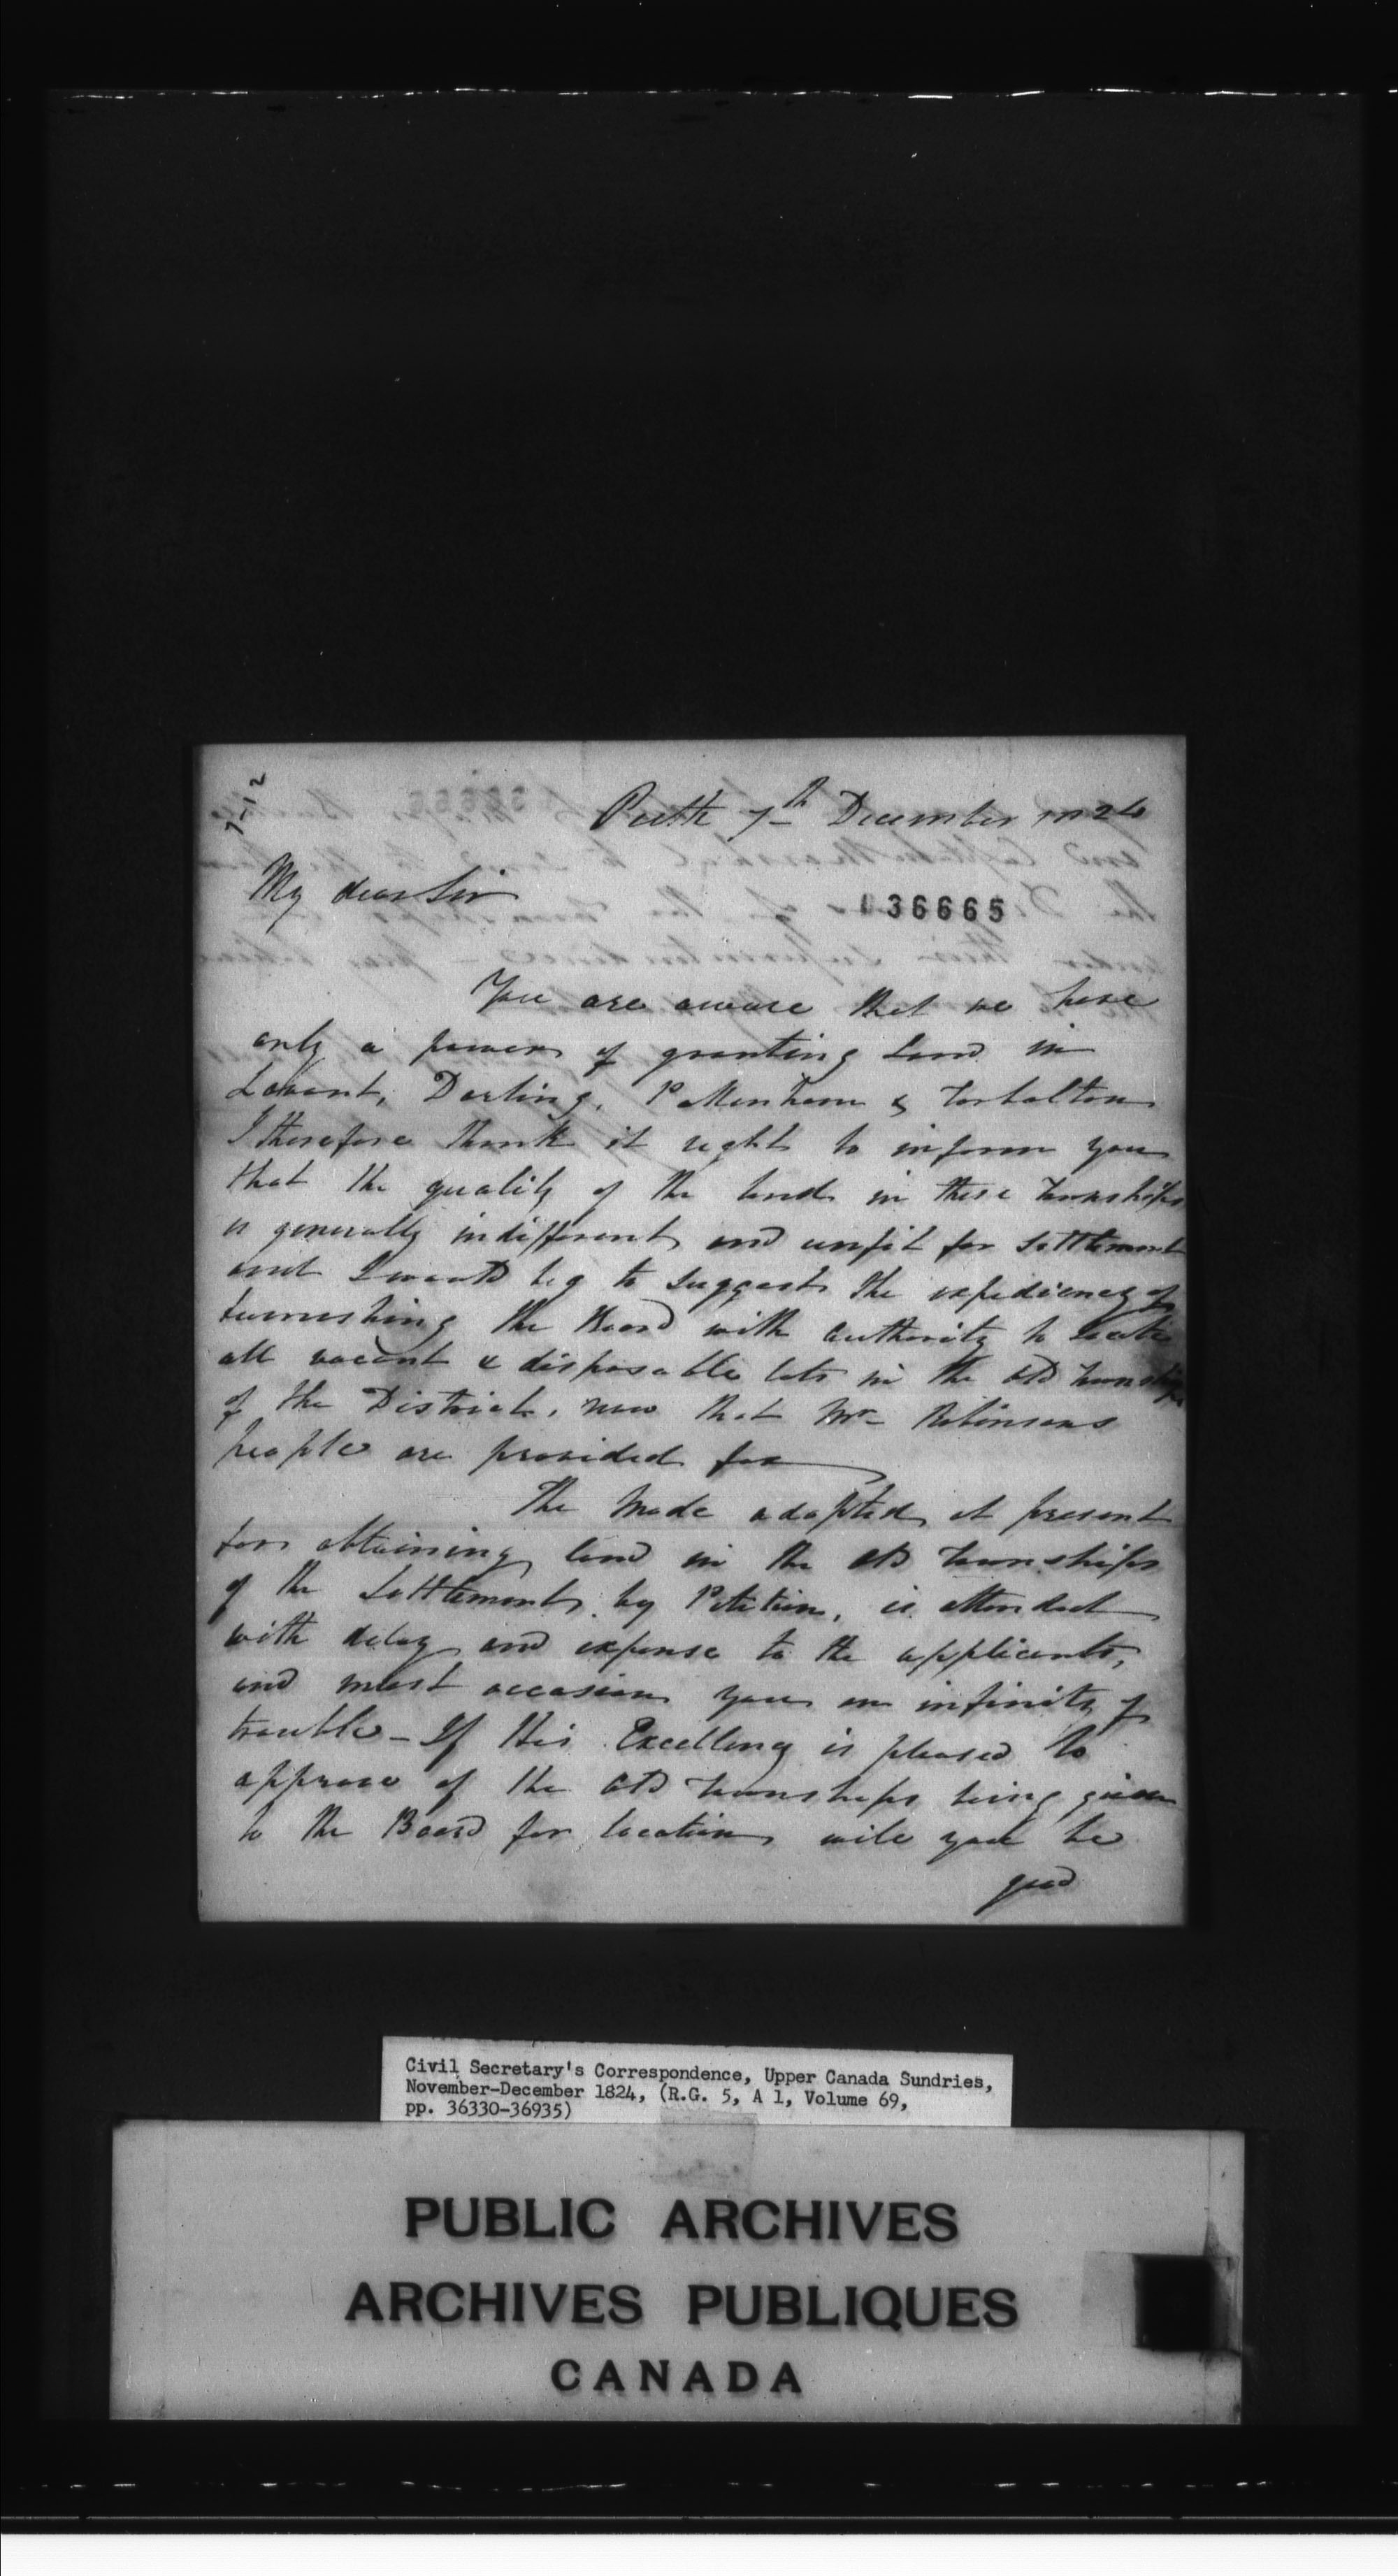 7-12
Perth 7th December 1824
My dear Sir
36665
You are aware that we have
only a power of granting Land in
Lavant, Darling, Pakenham & Torbolton
I therefore think it right to inform you
that the quality of the land in these Townships
is generally indifferent and unfit for settlement
and I would beg to suggest the expediency of
furnishing the Board with authority to locate
all vacant & disposable lots in the old Townships
of the District, now that Mr Robinsons
people are provided for
The mode adopted at present
for obtaining land in the old Townships
of the Settlement by Petition, is attended
with delay and expense to the applicants,
and must occasion you an infinity of
trouble - If His Excellency is pleased to
approve of the old Townships being given
to the Board for location will you be
good
Civil Secretary's Correspondence, Upper Canada Sundries,
November-December 1824, (R.G. 5, A 1, Volume 69,
pp. 36330-36935)
PUBLIC ARCHIVES
ARCHIVES PUBLIQUES
CANADA